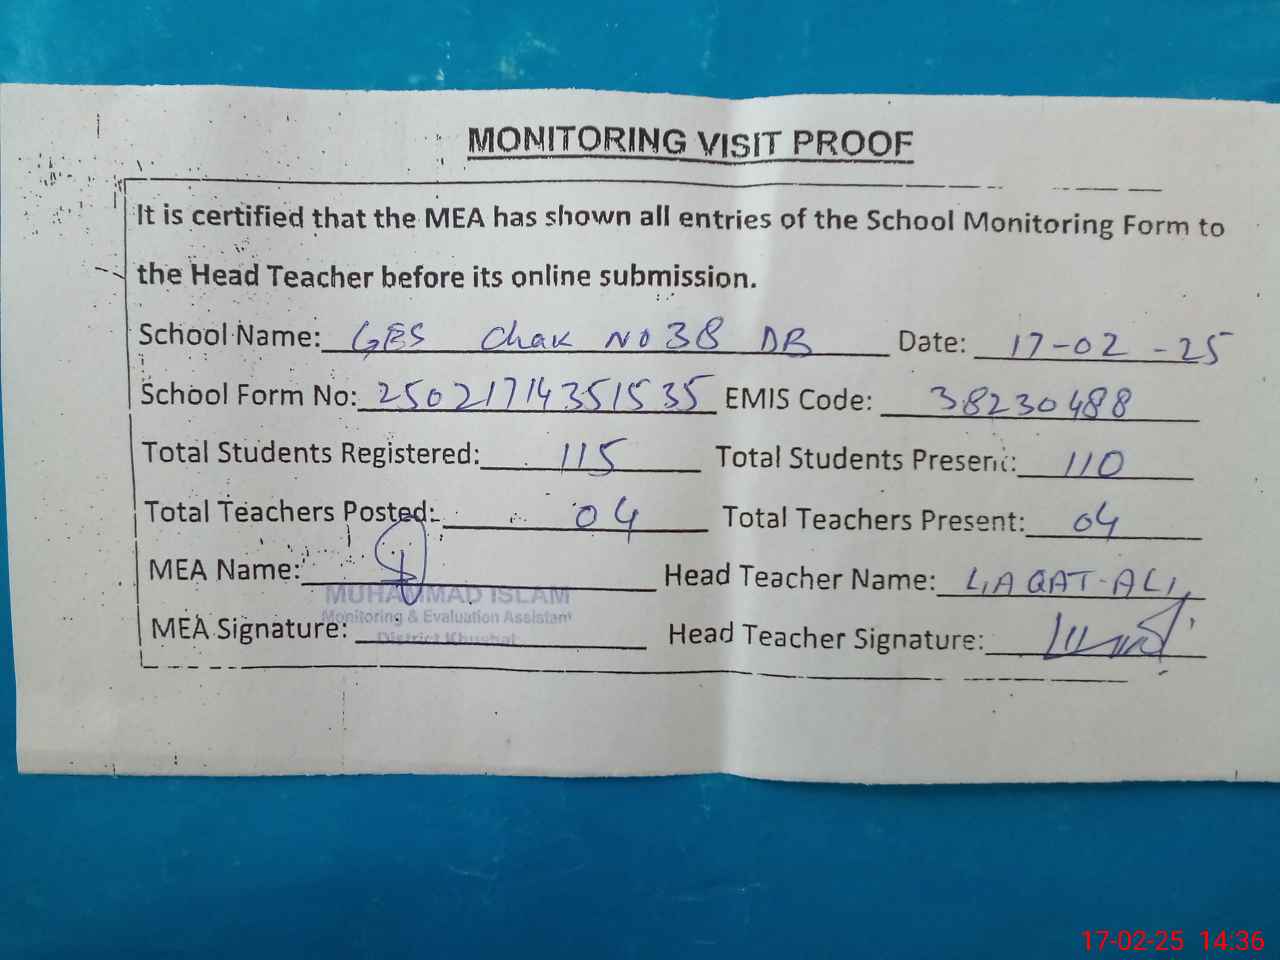 MONITORING VISIT PROOF
It is certified that the MEA has shown all entries of the School Monitoring Form to
the Head Teacher before its online submission.
School Name: GES Chak No 38 DB Date: 17-02-25
School Form No: 25021714351535 EMIS Code: 38230488
Total Students Registered: 115 Total Students Present: 110
Total Teachers Posted: 04 Total Teachers Present: 04
MEA Name: Head Teacher Name: LIAQAT-ALI
MUHAMMAD ISLAM
Monitoring & Evaluation Assistant
District Khushab
MEA Signature: Head Teacher Signature:
17-02-25 14:36